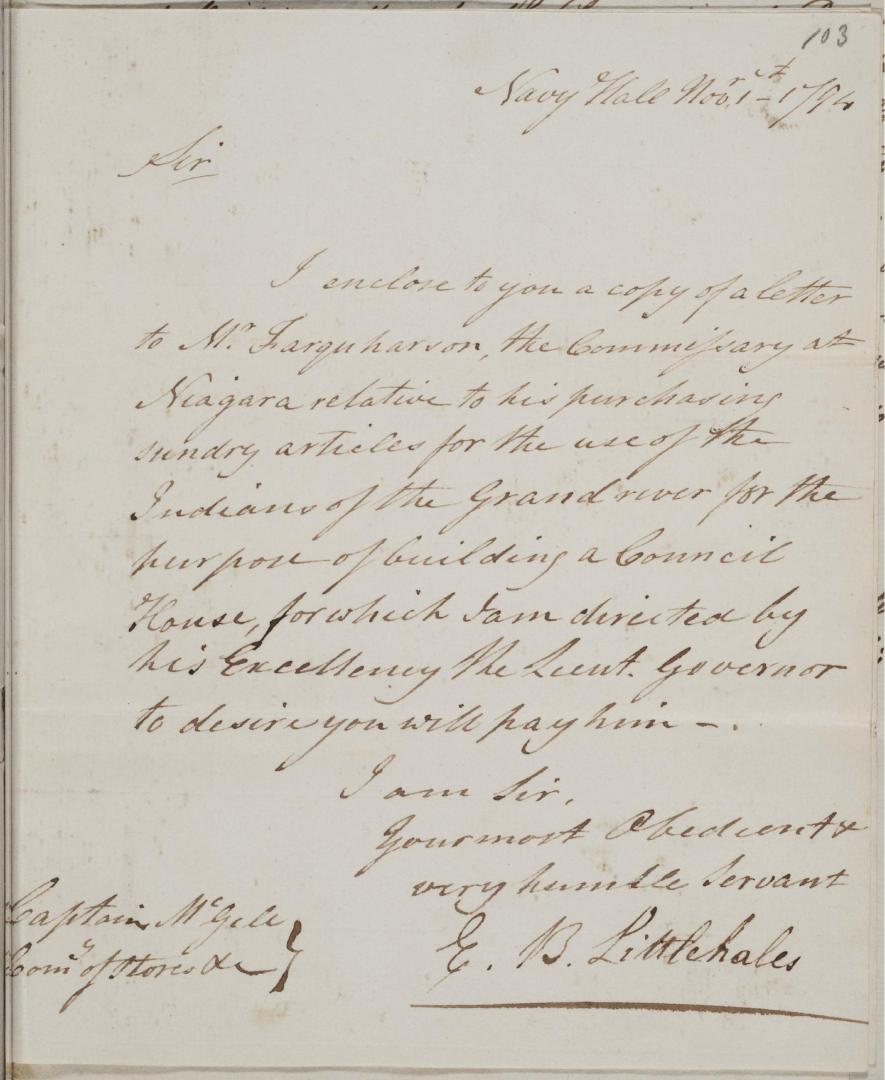 103
Navy Hall Novr. 1st 1794
Sir
I enclose to you a copy of a letter
to Mr. Farquharson, the Commissary at
Niagara relative to his purchasing
sundry articles for the use of the
Indians of the Grand river for the
purpose of building a Council
House, for which I am directed by
his Excellency the Lieut. Governor
to desire you will pay him —.
I am Sir,
Your most Obedient &
very humble Servant
E. B. Littlehales
Captain McGill
Comy of Stores &c